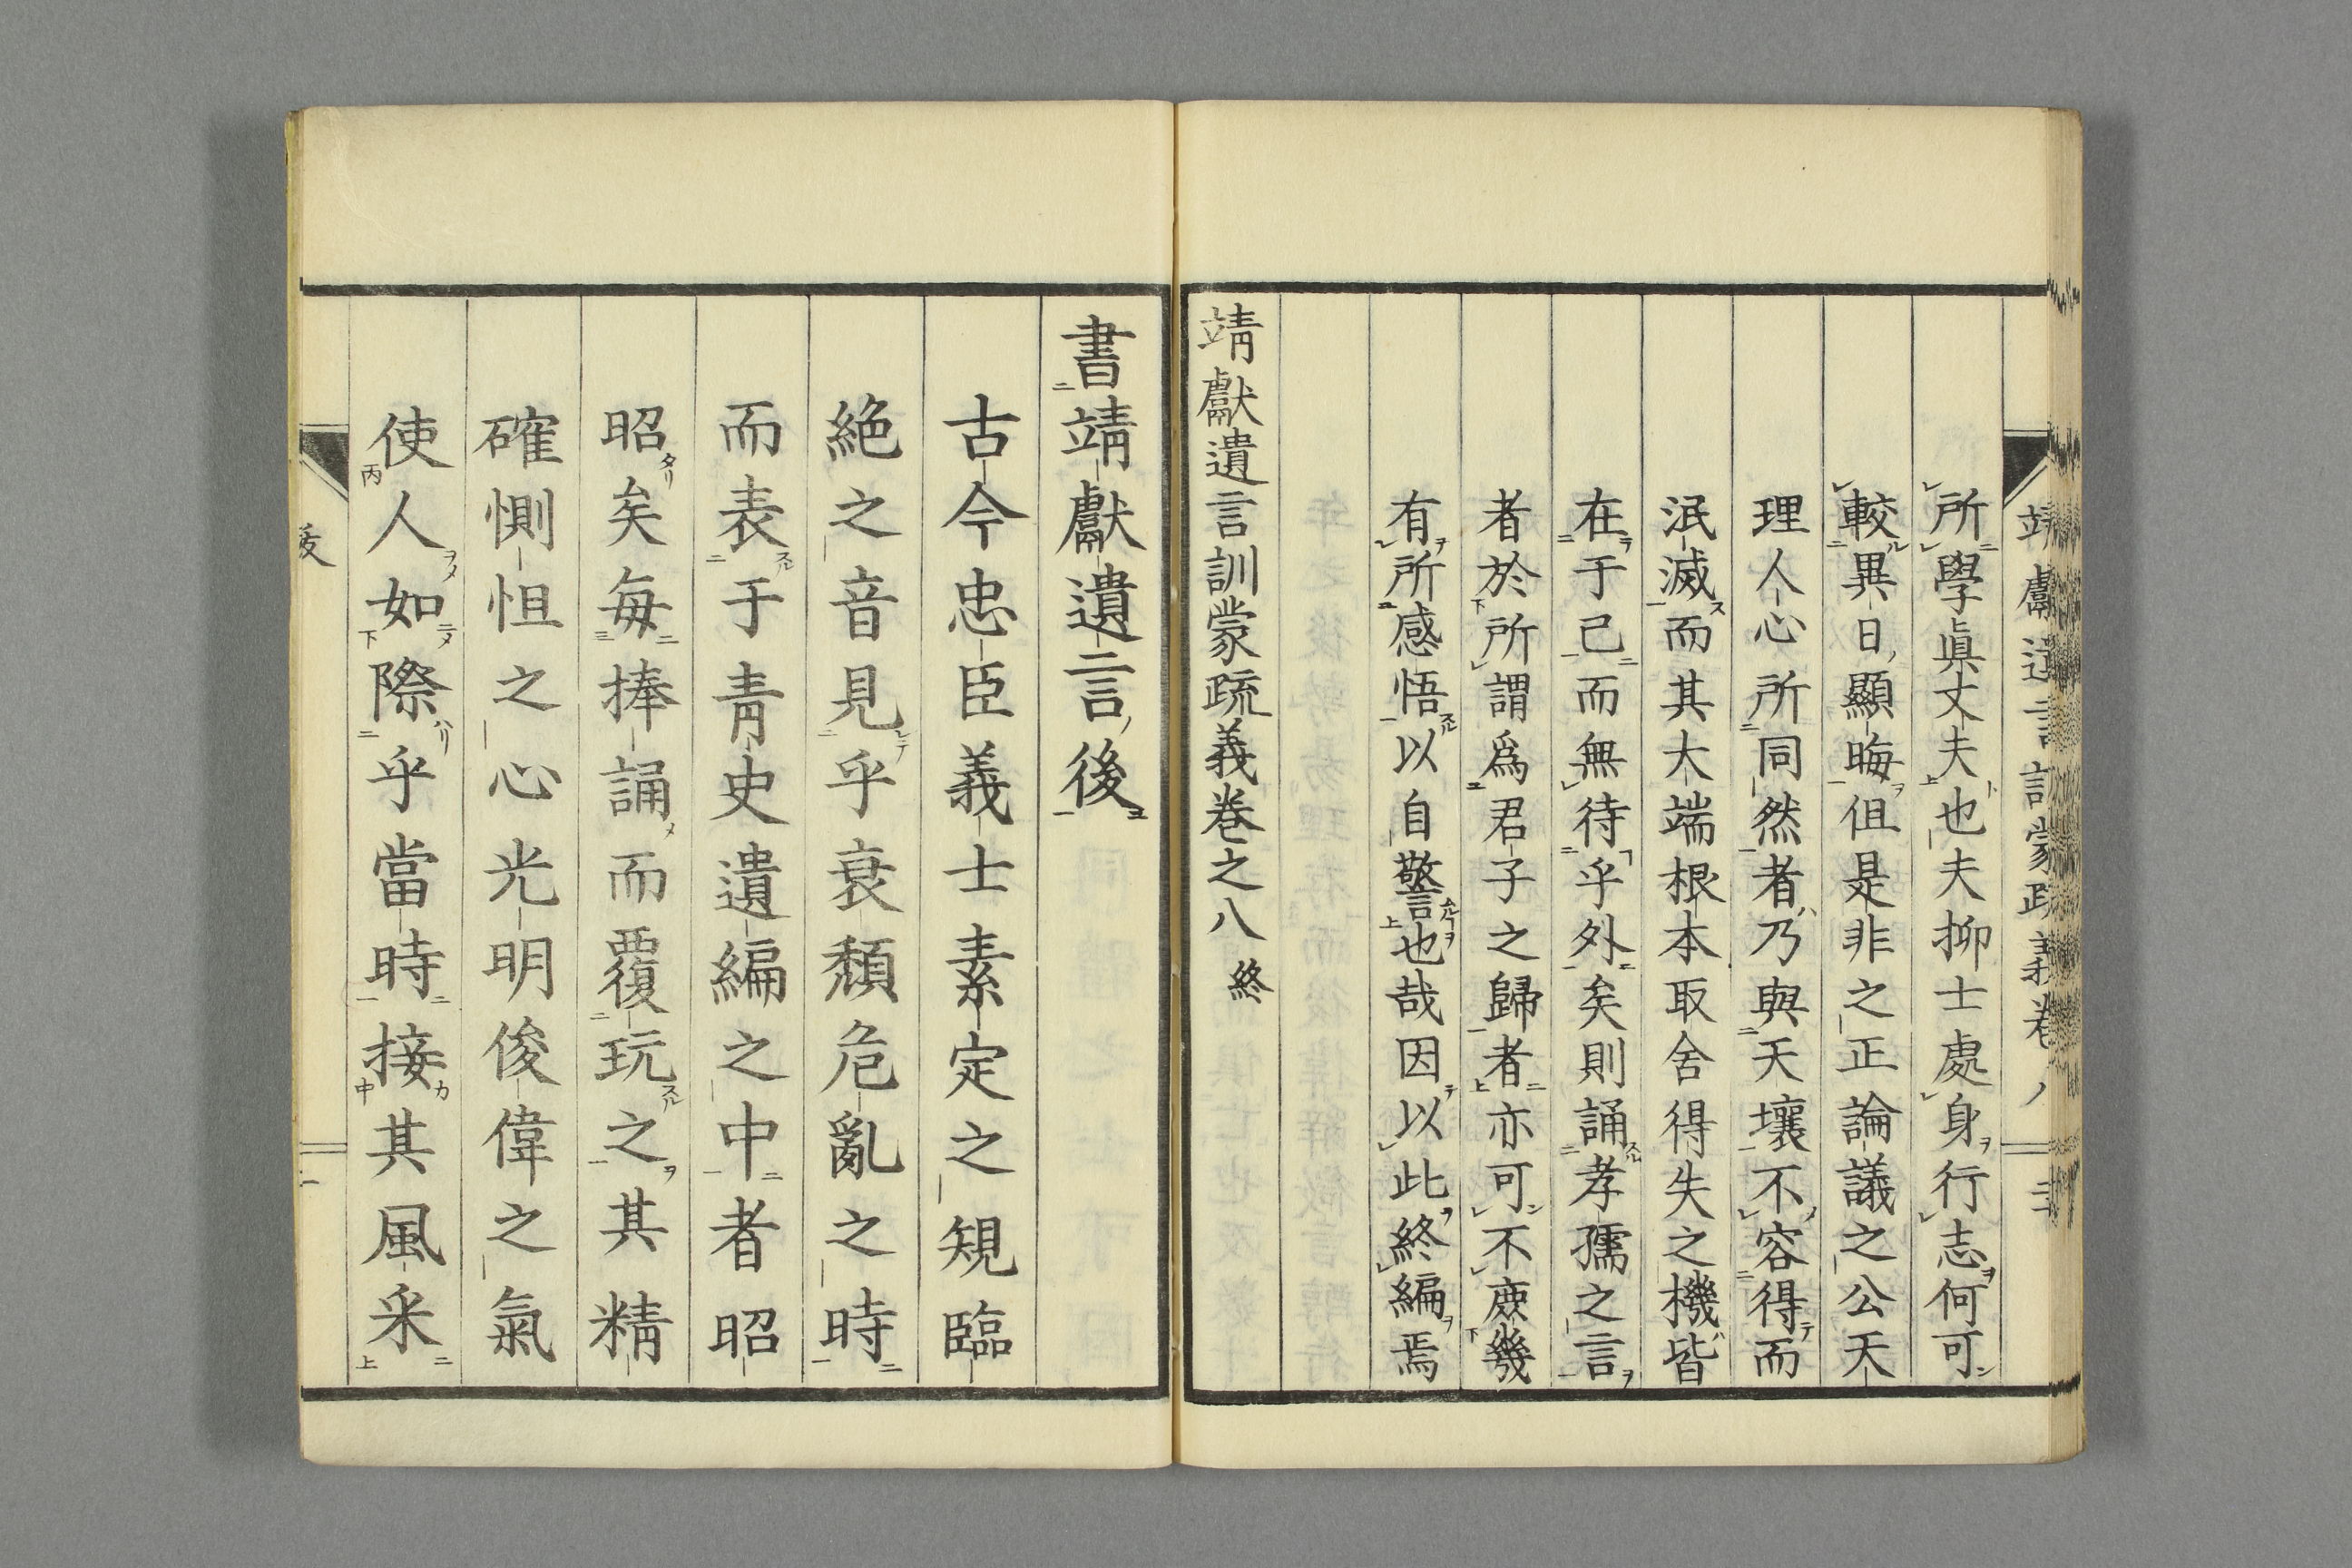 所學眞丈夫也夫抑士處身行志何可
較異日顯晦但是非之正論議之公天
理人心所同然者乃與天壤不容得而
泯滅而其大端根本取舍得失之機皆
在于己而無待乎外矣則誦孝孺之言
者於所謂爲君子之歸者亦可不庶幾
有所感悟以自警也哉因以此終編焉
靖獻遺言訓蒙疏義卷之八 終
書靖獻遺言後
古今忠臣義士素定之規臨
絶之音見乎衰頽危亂之時
而表于靑史遺編之中者昭
昭矣毎捧誦而覆玩之其精
確惻怛之心光明俊偉之氣
使人如際乎當時接其風采